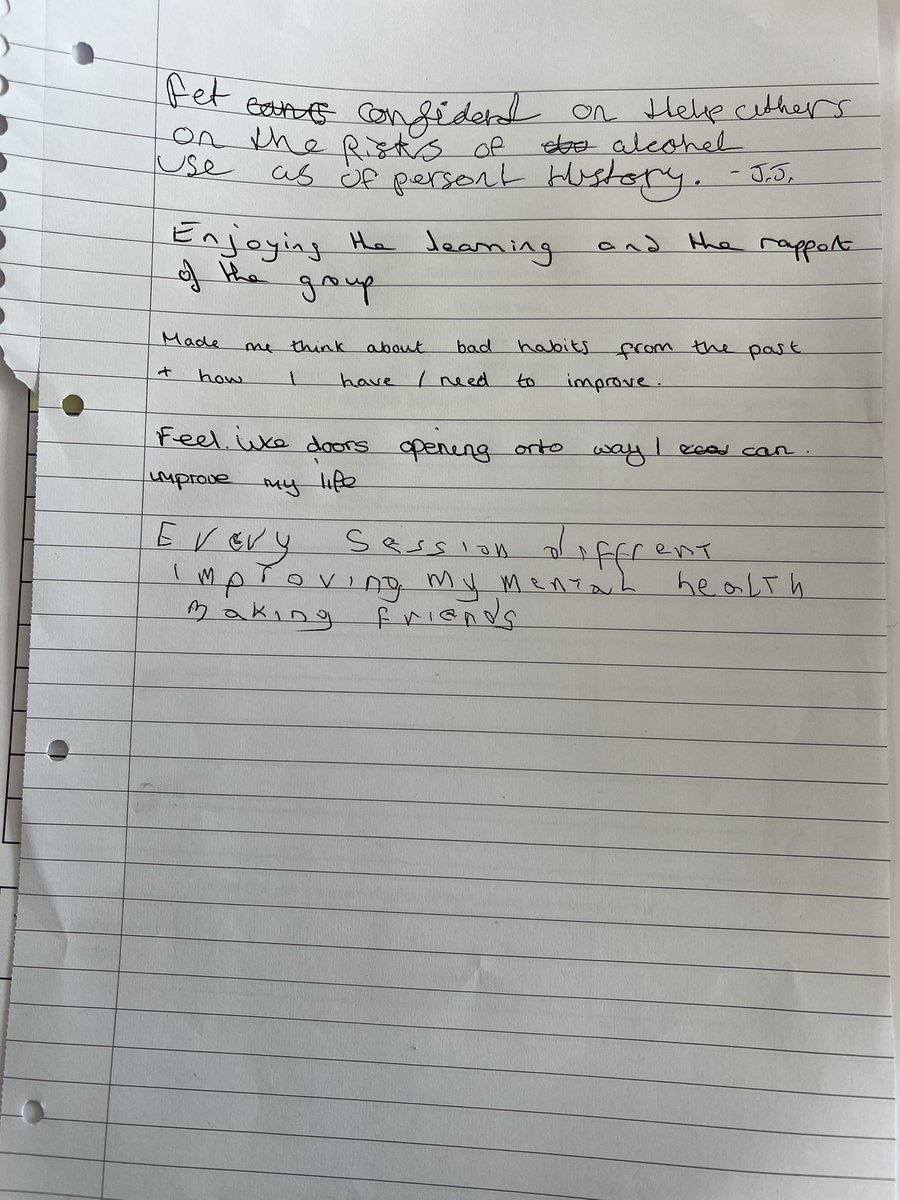 Fet confident on Help others
on the Risks of alcohol
Use as of persont History. - J.J.
Enjoying the learning and the rapport
of the group
Made me think about bad habits from the past
+ how I have / need to improve.
Feel like doors opening onto way I can.
improve my life
Every Session diffrent
improving my mental health
making friends